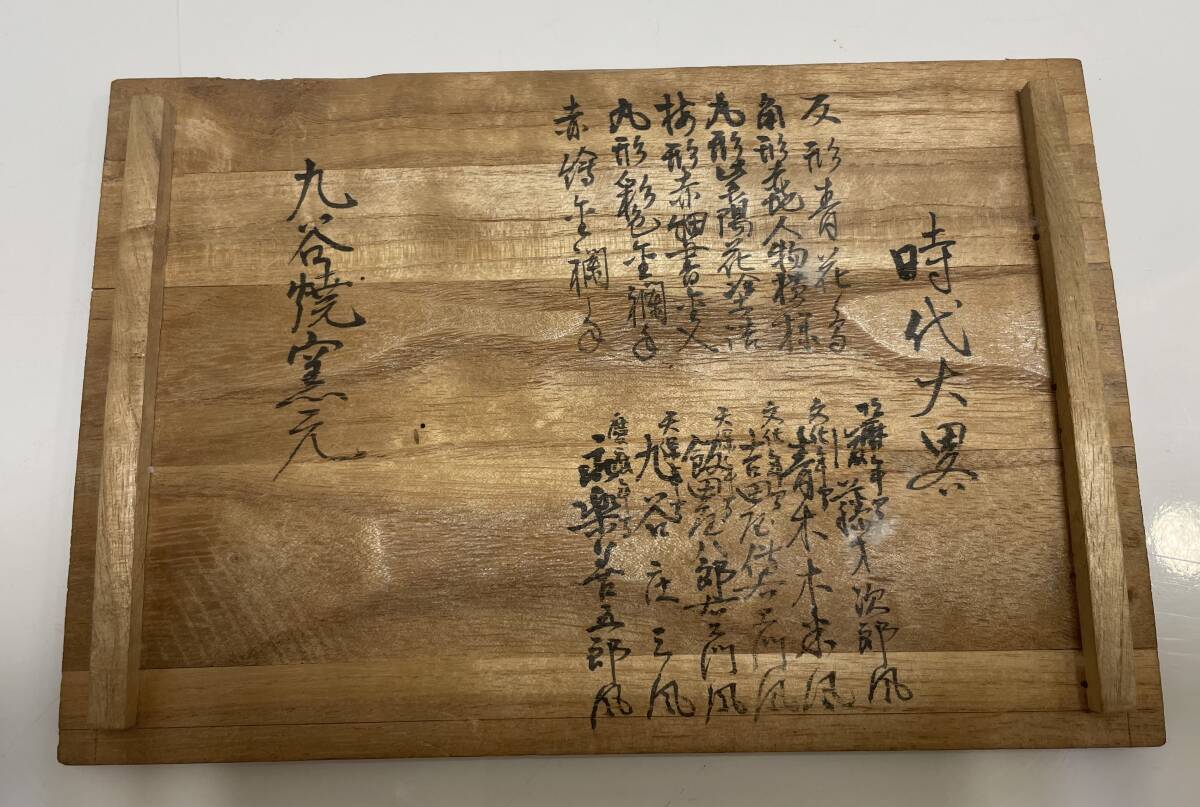 時代大畧
反形青花鳥
後藤才次郎風
角形 人物模様
文化年間
青木木米風
丸形紫陽花塗詰
文化年間
吉田屋傳右エ門風
梅形赤細書金入
天保年間
飯田屋八郎右エ門風
丸形彩色金襴手
天保年間
九谷庄三風
赤繪金襴手
永楽善五郎風
九谷焼窯元